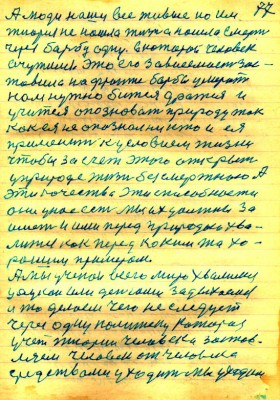 77
А люди наши все живые но им
тиория не нашла тижа нашла смерть
через барбу одну. В которой человек
очутился Это его зависемость зас-
тавила на фронте барбы умирать
нам нужно битса дратса и
учитса опозновать природу так
как ея не опознали никто и ея
применять к условием жизни
чтобы за счет этого открыть
у природе жить бессмертного А
эти качества Эти способности
они уносют мы их должны за
иметь и ими перед природой хва-
литса как перед каким та хо-
рошим примером.
А мы ученые всего мира хвалимся
уликой или детками задыхаемся
и то делаем чего не следует
через одну политику которая
учет тиории человека застав-
ляем человек от человека
средствами уходит мы уходим